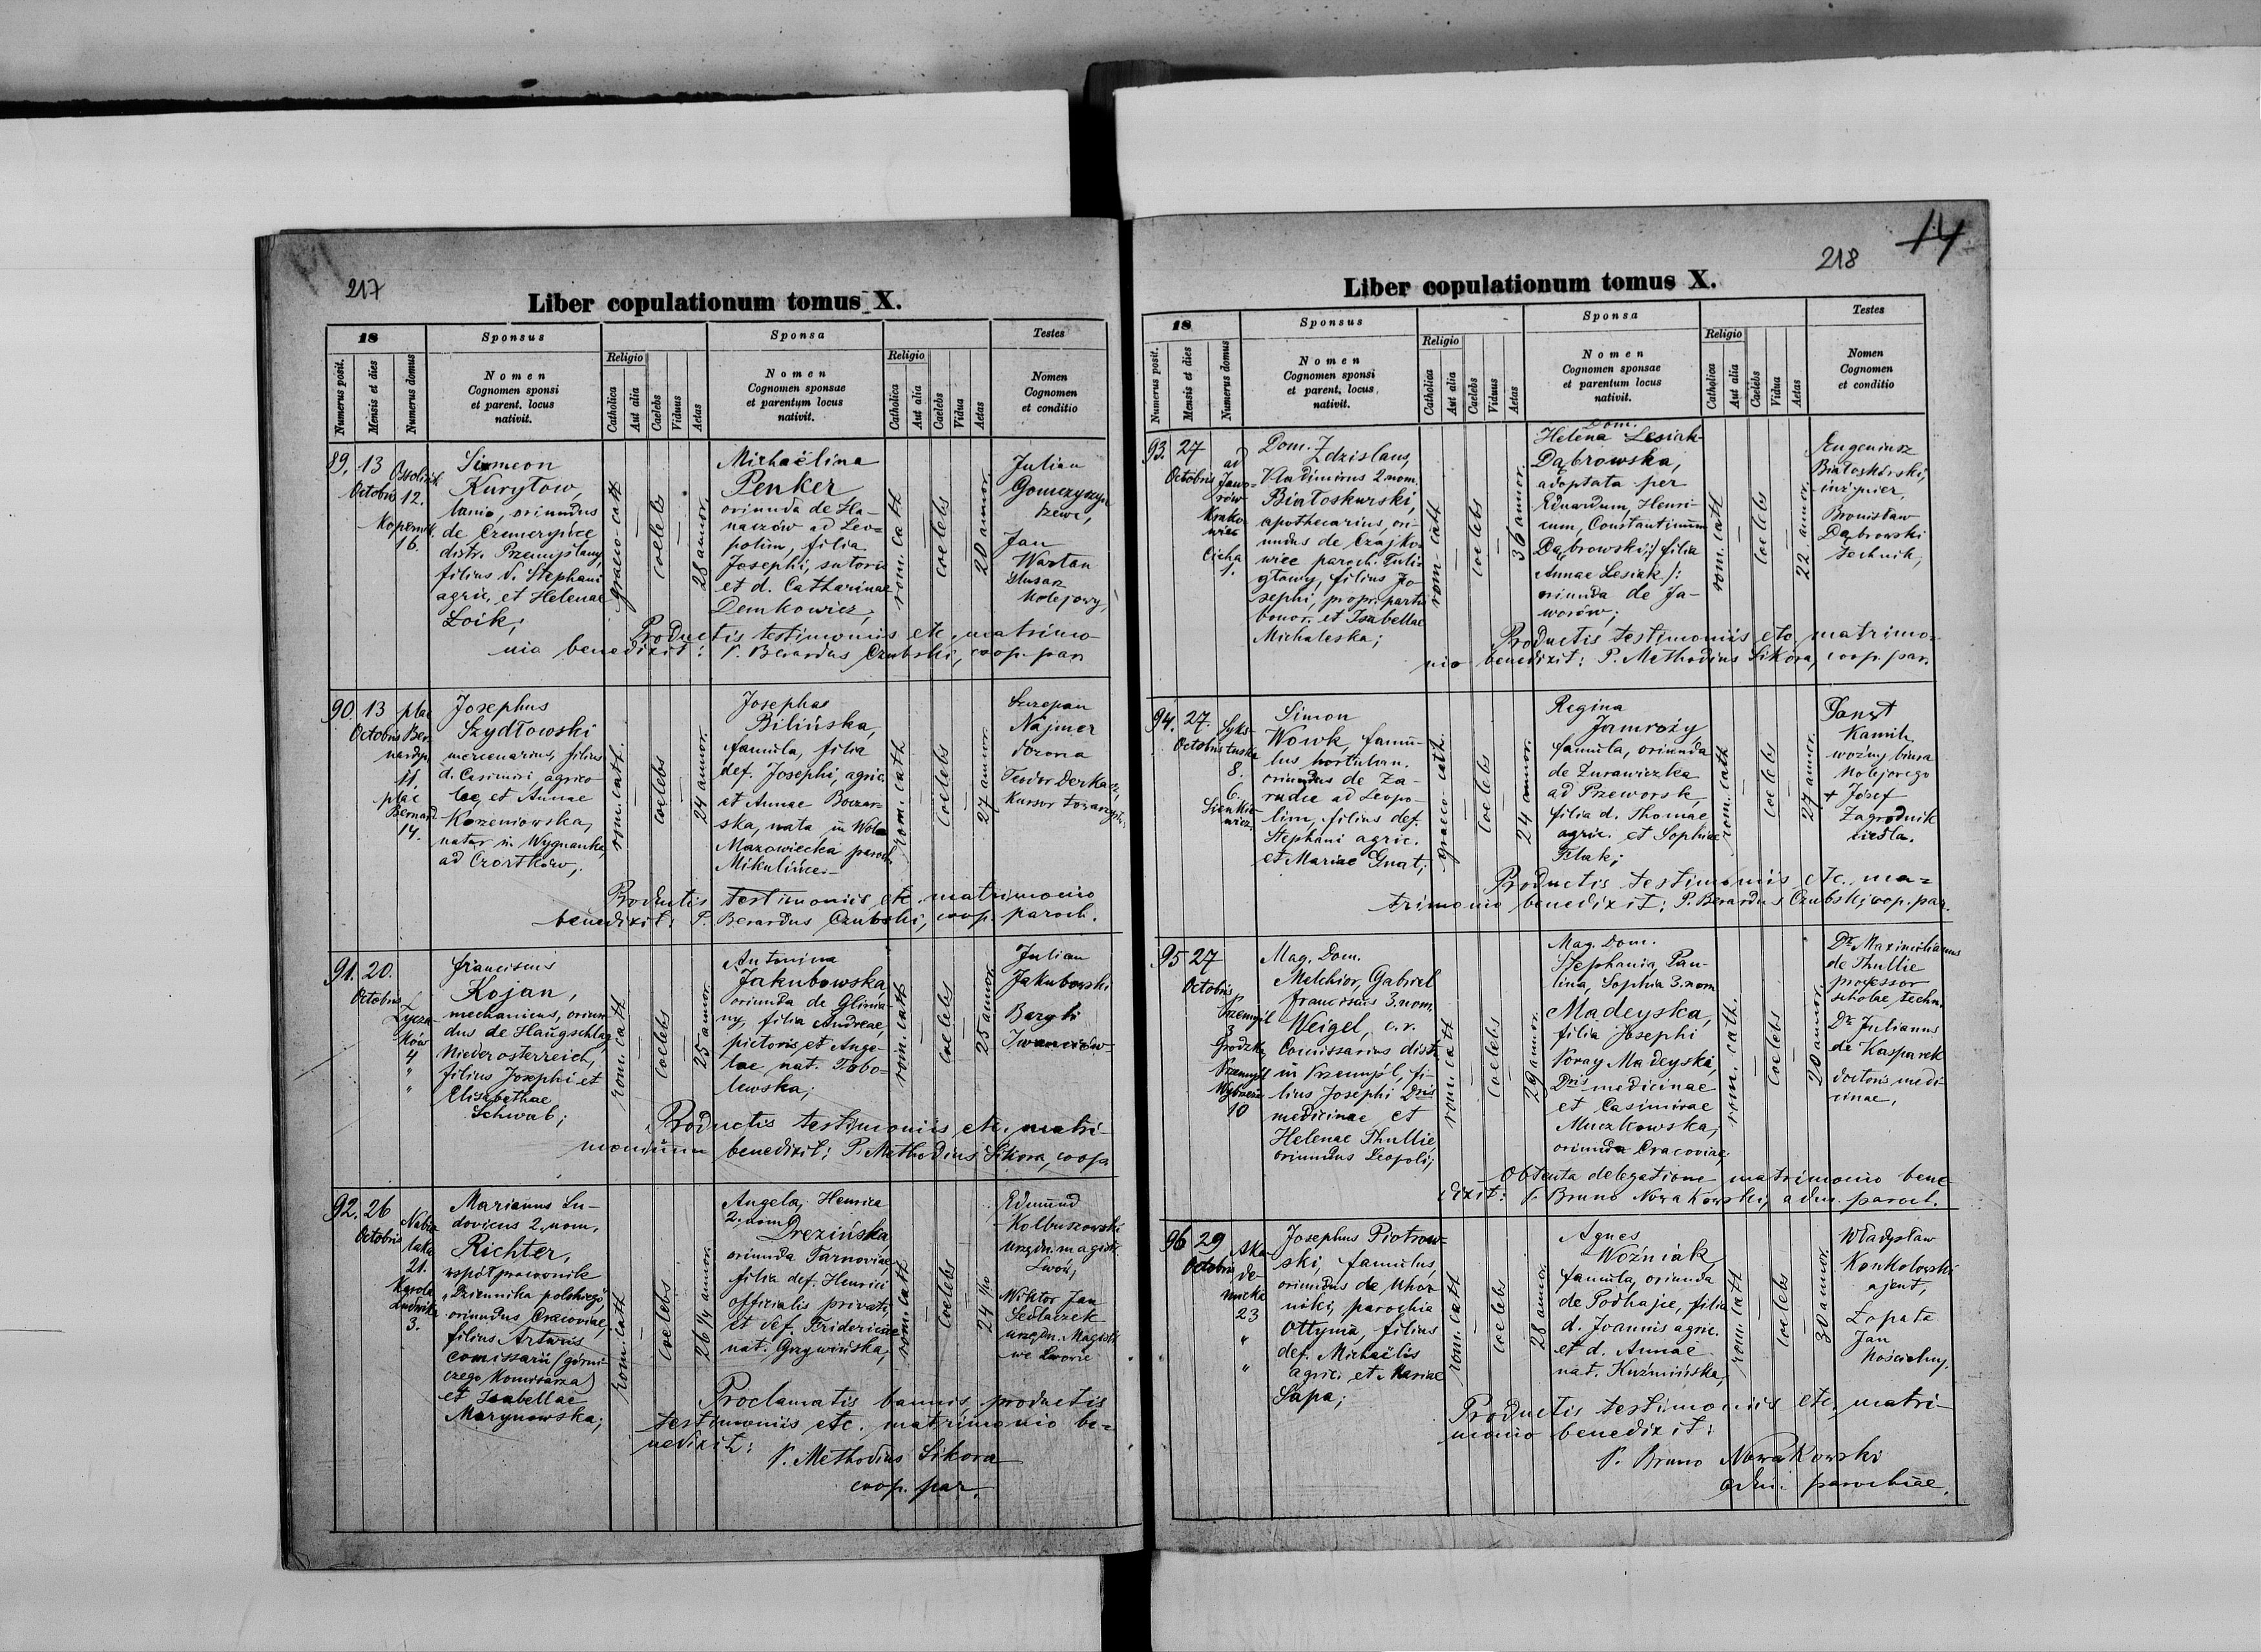 217
Liber copulationum tomus X.
18
Sponsus
Sponsa
Testes
Numerus posit.
Mensis et dies
Numerus domus
Nomen
Cognomen sponsi
et parent. locus
nativit.
Religio
Catholica
Aut alia
Caelebs
Viduus
Aetas
Nomen
Cognomen sponsae
et parentum locus
nativit.
Religio
Catholica
Aut alia
Caelebs
Vidua
Aetas
Nomen
Cognomen
et conditio
89. 13
Octobris
12.
Kopernik.
16.
Simeon
Kurytow,
lanio, oriundus
de Czemerynce
distr. Przemyslany,
filius d. Stephani
agric. et Helenae
Loik;
graeco-cath
coelebs
28 annor.
Michaëlina
Penker
oriunda de Ha-
naczów ad Leo-
polim, filia
Josephi, sutoris
et d. Catharinae
Demkowicz;
rom. cath
coelebs
20 annor.
Julian
szewc,
Jan
Wartan
ślusarz
kolejowy,
Productis testimoniis etc. matrimo-
nio benedixit: P. Berardus Czubski, coop. par.
90. 13
Octobris
plac
Ber-
nardyn
11
plac
Bernard
14.
Josephus
Szydłowski
mercenarius, filius
d. Casimiri, agrico-
lae et Annae
Korzeniowska,
natus in Wygnanka
ad Czortków,
rom. cath.
coelebs
24 annor.
Josepha
Bilińska,
famula, filia
def. Josephi, agric.
et Annae Boczar-
ska, nata in Wola
Mazowiecka paroch.
Mikulińce
rom. cath
coelebs
27 annor.
Szczepan
Najmer
dozorca
Teodor Derkacz,
Kursor
Productis testimoniis etc. matrimonio
benedixit: P. Berardus Czubski, coop. paroch.
91. 20.
Octobris
Łycza-
ków
4
"
"
Franciscus
Kojan,
mechanicus, oriun-
dus de Haugschlag
Niederosterreich,
filius Josephi et
Elisabethae
Schwab;
rom. cath
coelebs
25 annor.
Antonina
Jakubowska
oriunda de Glinia-
ny, filia Andreae
pictoris et Ange-
lae nat. Tobo-
lewska;
rom. cath
coelebs
25 annor.
Julian
Jakubowski
Bazyli
Iwanców
Productis testimoniis etc. matri-
monium benedixit: P. Methodius Sikora, coop
92. 26
Octobris
Nabie-
laka
21.
Karola
Ludwika
3.
Marianus Lu-
dovicus 2. nom.
Richter,
współpracownik
„Dziennika polskiego",
oriundus Cracoviae,
filius Arturis
comissarii (górni-
czego Komisarza)
et Isabellae
Marynowska;
rom. cath
coelebs
26 1/4 annor.
Angela, Henrica
2. nom
Drezińska,
oriunda Tarnoviae
filia def. Henrici
officialis privati
et def. Fridericae
nat. Grzywińska;
rom. cath
coelebs
24 1/10
Edmund
Kolbuszowski
urzędn. magistr.
Lwów;
Wiktor Jan
Sedlaczek
urzędn. Magistr.
we Lwowie
Proclamatis bannis, productis
testimoniis etc. matrimonio be-
nedixit:
P. Methodius Sikora
coop. par.
218
14
Liber copulationum tomus X.
18
Sponsus
Sponsa
Testes
Numerus posit.
Mensis et dies
Numerus domus
Nomen
Cognomen sponsi
et parent. locus
nativit.
Religio
Catholica
Aut alia
Caelebs
Viduus
Aetas
Nomen
Cognomen sponsae
et parentum locus
nativit.
Religio
Catholica
Aut alia
Caelebs
Vidua
Aetas
Nomen
Cognomen
et conditio
93. 27
Octobris
ad
Jawo-
rów
Krako-
wiec
Cicha
1.
Dom. Zdzislaus,
Vladimirus 2 nom.
Białoskurski,
apothecarius, ori-
undus de Czajko-
wice paroch. Tuli-
głowy, filius Jo-
sephi, propr. partis
bonor. et Isabellae
Michaleska;
rom-cath
coelebs
36 annor.
Dom.
Helena Lesiak-
Dąbrowska,
adoptata per
Eduardum, Henri-
cum, Constantinum
Dąbrowski;/ filia
Annae Lesiak/:
oriunda de Ja-
worów;
rom. cath
coelebs
22 annor.
Eugeniusz
Białoskórski,
inżynier,
Bronisław
Dąbrowski
technik,
Productis testimoniis etc. matrimo-
nio benedixit: P. Methodius Sikora, coop. par.
94. 27.
Octobris
Syks-
tuska
8.
6.
Sienkie-
wicz.
Simon
Wowk, famu-
lus hortulan.
oriundus de Za-
rudce ad Leopo-
lim, filius def.
Stephani agric.
et Mariae Gnat;
graeco-cath.
coelebs
24 annor.
Regina
Jamroży
famula, oriunda
de Żurawiczka
ad Przeworsk,
filia d. Thomae
agric. et Sophiae
Flak;
rom. cath
coelebs
27 annor.
Kamil
woźny biura
kolejowego
+ Józef
Zagrodnik
cieśla.
Productis testimoniis etc. ma-
trimonio benedixit: P. Berardus Czubski coop. par.
95 27
Octobris
Przemyśl
3
Grodzka
Przemyśl
10
Mag. Dom.
Melchior, Gabriel
Franciscus 3. nom.
Weigel, c.r.
Comissarius distr.
in Przemyśl, fi-
lius Josephi Dris
medicinae et
Helenae Thullie,
oriundus Leopoli;
rom. cath
coelebs
29 annor.
Mag. Dom.
Stephania, Pau-
lina, Sophia 3. nom
Madeyska,
filia Josephi
Poray Madeyski,
Dris medicinae
et Casimirae
Muczkowska,
oriunda Cracoviae,
rom. cath.
coelebs
20 annor.
Dr Maximilianus
de Thullie
professor
scholae techn.
Dr Julianus
de Kasparek
doctoris medi-
cinae,
Obtenta delegatione matrimonio bene-
dixit: P. Bruno Nowakowski, adm. paroch.
96 29
Octobris
Aka-
de-
micka
23
"
"
Josephus Piotrow-
ski, famulus,
oriundus de Uhor-
niki, parochia
Ottynia, filius
def. Michaëlis
agric. et Mariae
Sapa;
rom. cath
coelebs
28 annor.
Agnes
Woźniak,
famula, oriunda
de Podhajce, filia
d. Joannis agric.
et d. Annae
nat. Kuźmińska;
rom. cath
coelebs
30 annor.
Władysław
Konkolowski
ajent,
Łopata
Jan
kościelny.
Productis testimoniis etc. matri-
monio benedixit:
P. Bruno Nowakowski
adm. parochiae.